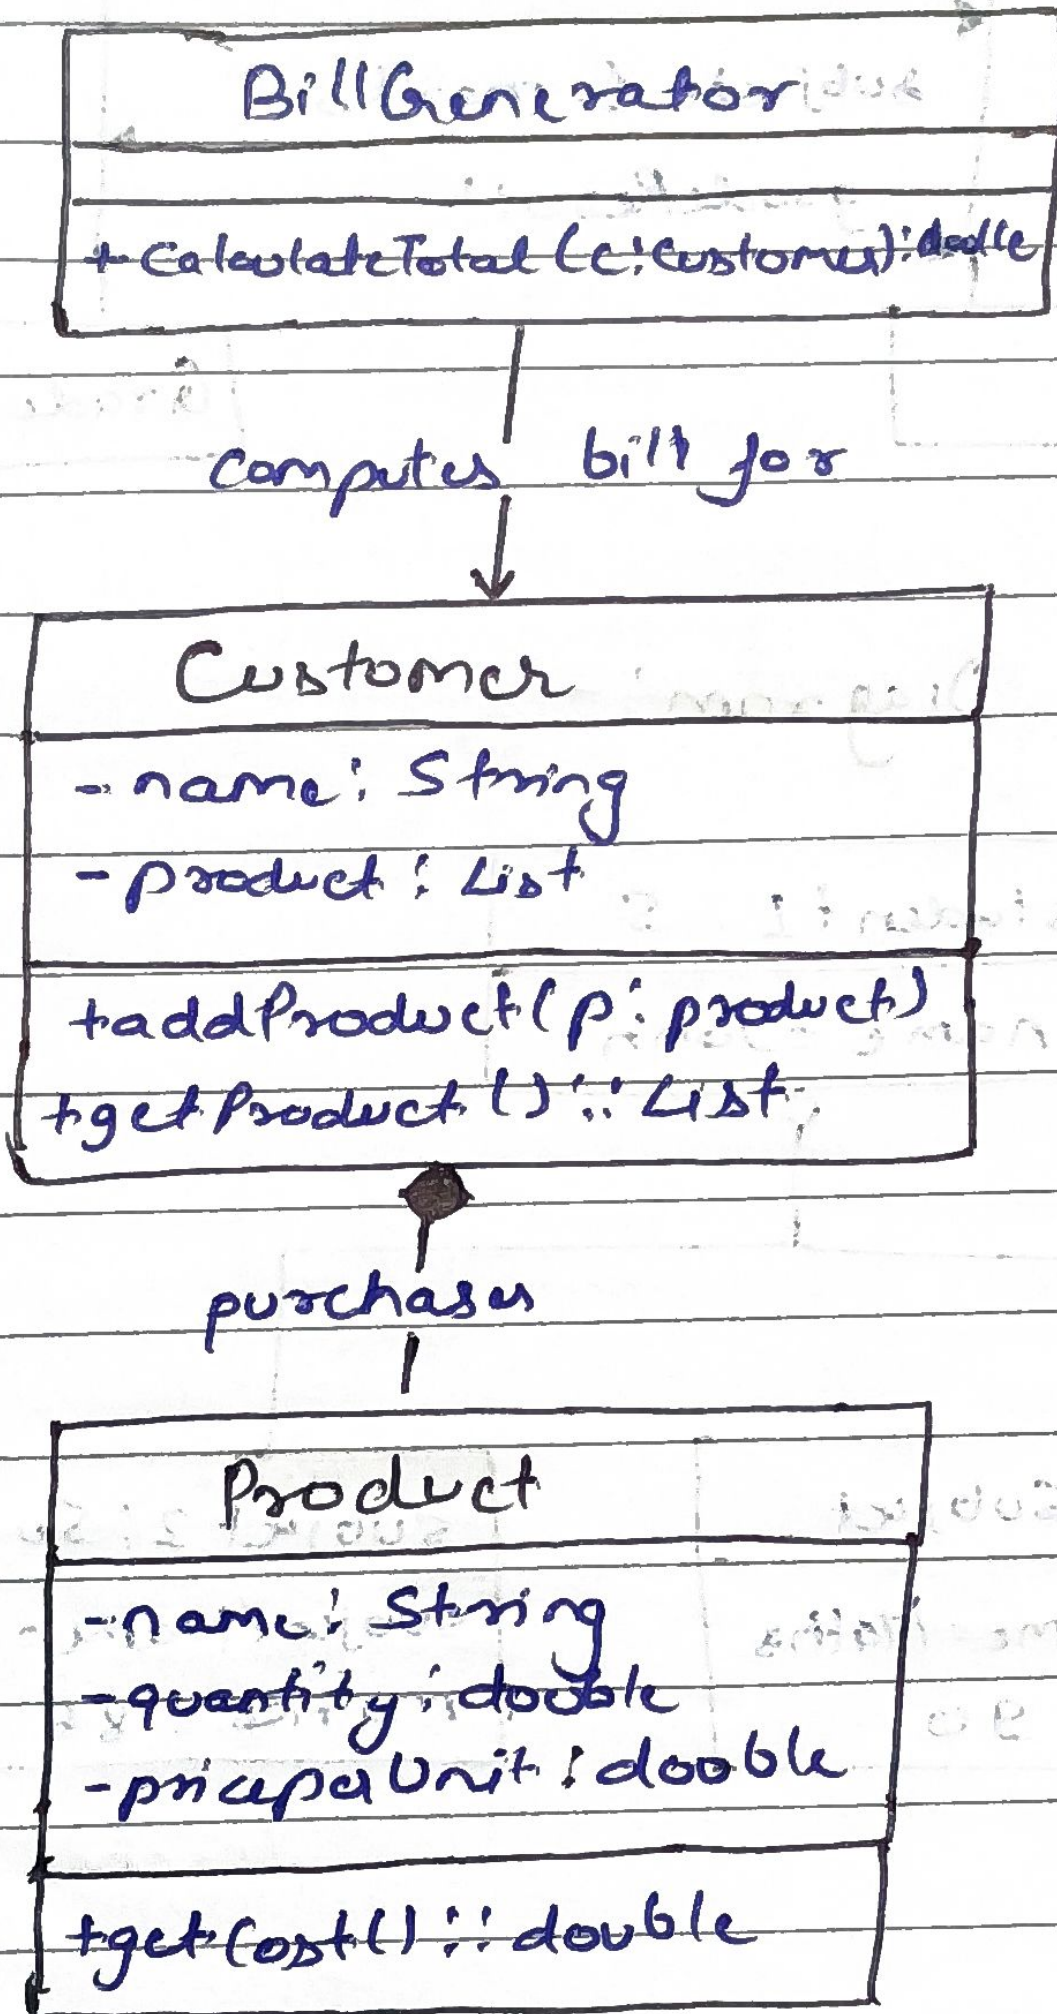 BillGenerator
+ CalculateTotal (c: Customer): double
computes bill for
Customer
- name: String
- product: List
+addProduct(p: product)
+getProduct():: List
purchases
Product
- name: String
- quantity: double
- priceperUnit: dooble
+getCost():: double